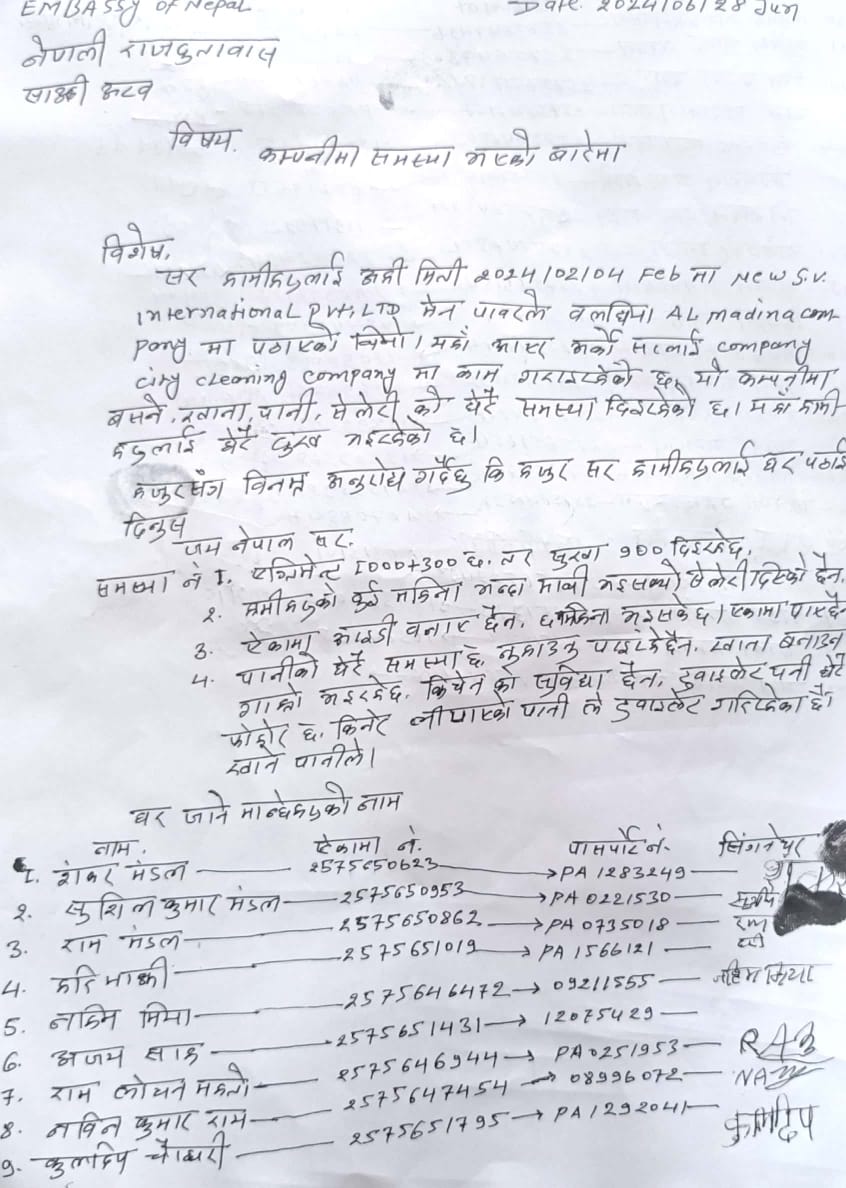 EMBASSY OF Nepal Date. 2024/06/28 Jun
नेपाली राजदुतावास
साउदी अरव
विषय. कम्पनीमा समस्या भएको बारेमा
विशेष,
सर हामीहरुलाई अघी मिती 2024/02/04 Feb मा New S.V.
International PVT, LTD मेन पावरले वलदिया AL madina com-
pany मा पठाएको थियो। यहाँ आएर अर्को सप्लाई company
city cleaning company मा काम गराइरहेको छ, यो कम्पनीमा
बसने, खाना, पानी, सेलेरी को धेरै समस्या दिइरहेको छ। यहाँ हामी
हरुलाई धेरै दुख भइरहेको छ।
हजुरसंग विनम्र अनुरोध गर्दैछु कि हजुर सर हामीहरुलाई घर पठाई
दिनुस
जय नेपाल सर.
समस्या नं 1. एग्रिमेन्ट 1000+300 छ. तर पुरवा 900 दिइरहेछ,
2. हामीहरुको दुई महिना भन्दा माथी भइसक्यो सेलेरी दिएको छैन.
3. ऐकामा आइडी बनाए छैन. ६ महिना भइसकेछ।
4. पानीको धेरै समस्या छ, नुहाउनु पाइरहेछैन. खाना बनाउन
गाह्रो भइरहेछ. किचेन को सुविधा छैन, ट्वाइलेट पनी धेरै
फोहोर छ. किनेर लीयाएको पानी ले ट्वाइलेट गरिरहेका छौ।
खाने पानीले।
घर जाने मान्छेहरुको नाम
नाम. ऐकामा नं. पासपोर्ट नं.
1. शंकर मंडल — 2575650623 → PA 1283249 —
2. सुशिल कुमार मंडल — 2575650953 → PA 0221530 —
3. राम मंडल — 2575650862 → PA 0735018 — राम
4. हरि माझी — 2575651019 → PA 1566121 — हरी
5. नाहिम मिया — 2575646472 → 09211555 —
6. अजय साह — 2575651431 → 12075429 —
7. राम लोचन महतो — 2575646944 → PA 0251953 —
8. नविन कुमार राम — 2575647454 → 08996072 —
9. कुलदिप चौधरी — 2575651795 → PA 1292041 — कुलदिप